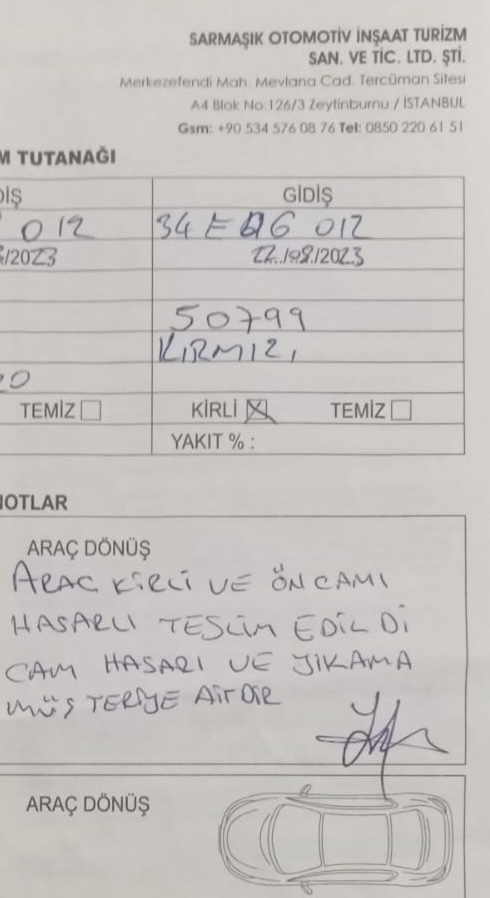 SARMAŞIK OTOMOTİV İNŞAAT TURİZM
SAN. VE TİC. LTD. ŞTİ.
Merkezefendi Mah. Mevlana Cad. Tercüman Sitesi
A4 Blok No:126/3 Zeytinburnu / İSTANBUL
Gsm: +90 534 576 08 76 Tel: 0850 220 61 51
M TUTANAĞI
DİŞ GİDİŞ
012 34 E 012
/2023 /2023
50799
KIRMIZI
20
TEMİZ KİRLİ TEMİZ
YAKIT % :
NOTLAR
ARAÇ DÖNÜŞ
ARAC KİRLİ VE ÖN CAMI
HASARLI TESLİM EDİLDİ
CAM HASARI VE YIKAMA
MÜŞTERİYE AİTDİR
ARAÇ DÖNÜŞ